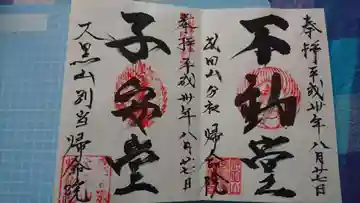 奉拝平成卅年八月廿七日
不動堂
成田山分社 帰命院
奉拝平成卅年八月廿七日
子安堂
大黒山別当 帰命院